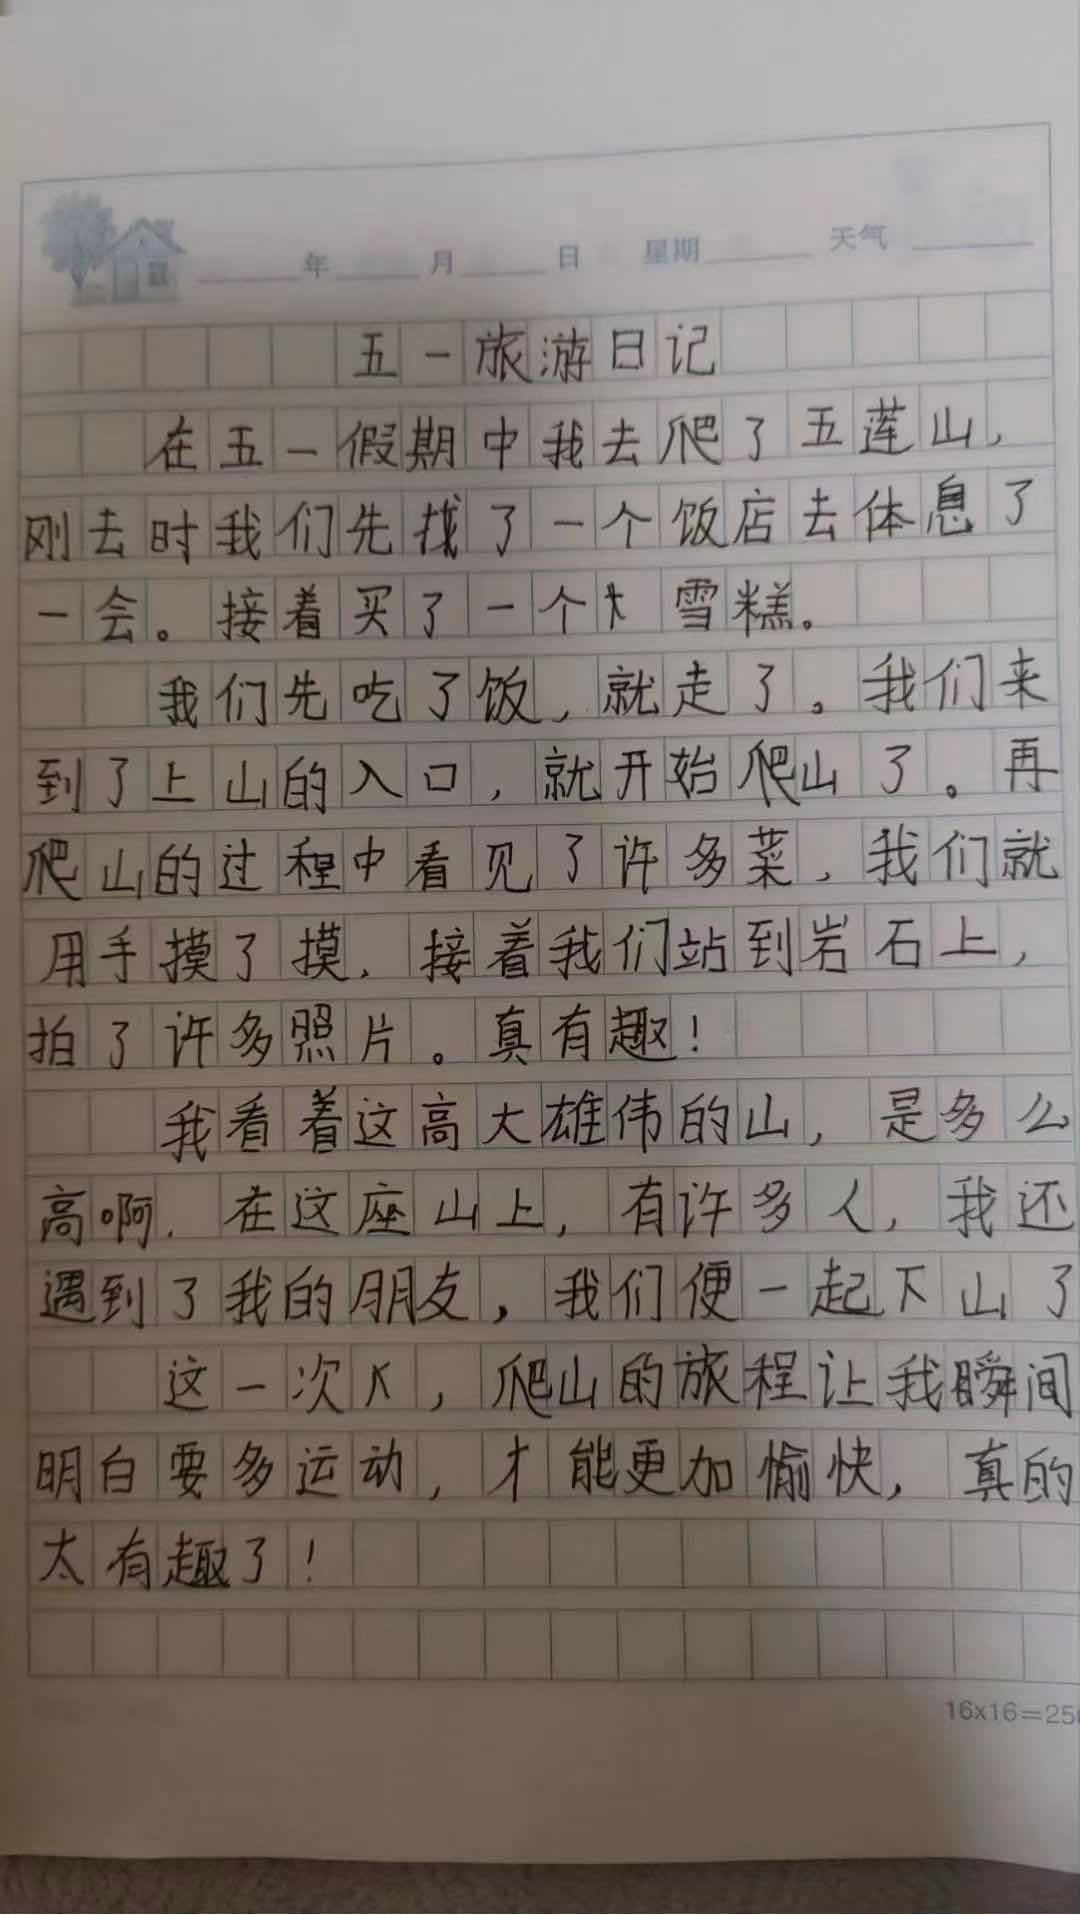 年 月 日 星期 天气
五一旅游日记
在五一假期中我去爬了五莲山,
刚去时我们先找了一个饭店去体息了
一会。接着买了一个 雪糕。
我们先吃了饭,就走了。我们来
到了上山的入口,就开始爬山了。再
爬山的过程中看见了许多菜,我们就
用手摸了摸,接着我们站到岩石上,
拍了许多照片。真有趣!
我看着这高大雄伟的山,是多么
高啊.在这座山上,有许多人,我还
遇到了我的朋友,我们便一起下山了
这一次 ,爬山的旅程让我瞬间
明白要多运动,才能更加愉快,真的
太有趣了!
16x16=25